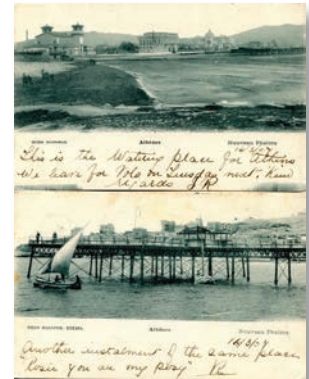 Athènes
Nouveau Phalère
This is the Watering place for Athens
We leave for Volo on Tuesday next. Kind
regards JR
Athènes
Nouveau Phalère
16/3/07
Another instalment of the same place
Rosie you are my